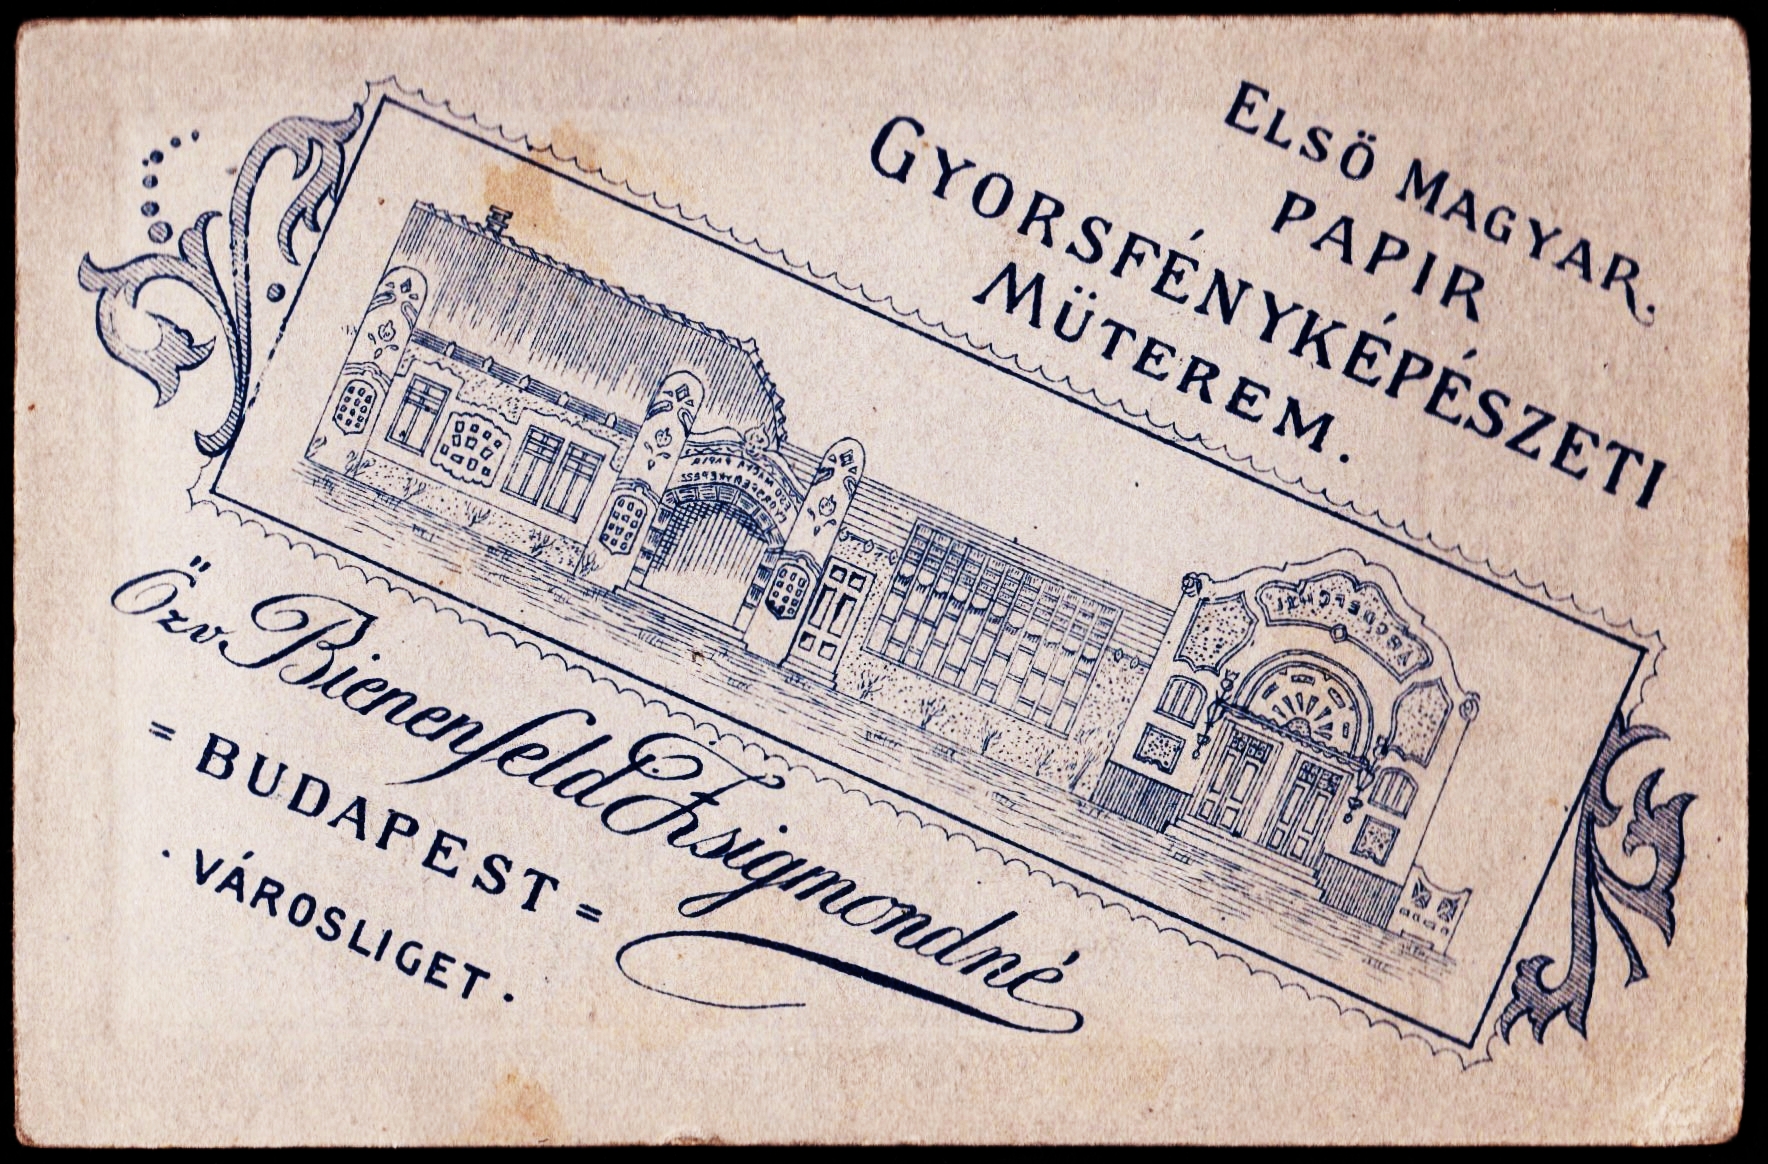 ELSÖ MAGYAR.
PAPIR
GYORSFÉNYKÉPÉSZETI
MÜTEREM.
Özv Bienenfeld Zsigmondné
= BUDAPEST =
· VÁROSLIGET ·